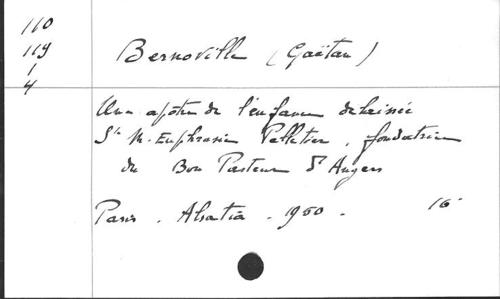 110
119
1
4
Bernoville (Gaëtan)
Un apôtre de l'enfance délaissée
Ste M. Euphrasie Pelletier, fondatrice
du Bon Pasteur d'Angers
Paris. Alsatia. 1950. 16°